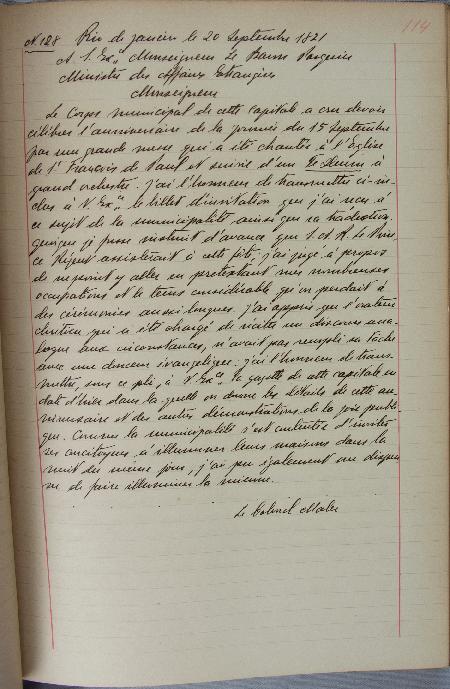 114
N. 128 Rio de Janeiro le 20 Septembre 1821
A S. Exce Monseigneur Le Baron Pasquier
Ministre des Affaires Etrangères
Monseigneur
Le Corps municipal de cette capitale a cru devoir
célébrer l'anniversaire de la journée du 15 Septembre
par une grande messe qui a été chantée à l'Eglise
de St François de Paul et suivie d'un Te Deum à
grand orchestre. J'ai l'honneur de transmettre ci-in-
clus à V. Exce le billet d'invitation que j'ai reçu à
ce sujet de la municipalité ainsi que sa traduction.
quoique je fusse instruit d'avance que S. A. R. le Prin-
ce Régent assisterait à cette fête, j'ai jugé à propos
de ne point y aller en prétextant mes nombreuses
occupations et le tems considérable qu'on perdait à
des cérémonies aussi longues. J'ai appris que l'orateur
chrétien qui a été chargé de réciter un discours ana-
logue aux circonstances, n'avait pas rempli sa tâche
avec une douceur évangélique. J'ai l'honneur de trans-
mettre, sous ce pli, à V. Exce la gazette de cette capitale en
date d'hier dans laquelle on donne les détails de cette an-
niversaire et des autres démonstrations de la joie publi-
que. Comme la municipalité s'est contentée d'inviter
ses concitoyens à illuminer leurs maisons dans la
nuit du même jour, j'ai pu également me dispen
ser de faire illuminer la mienne.
Le Colonel Maler